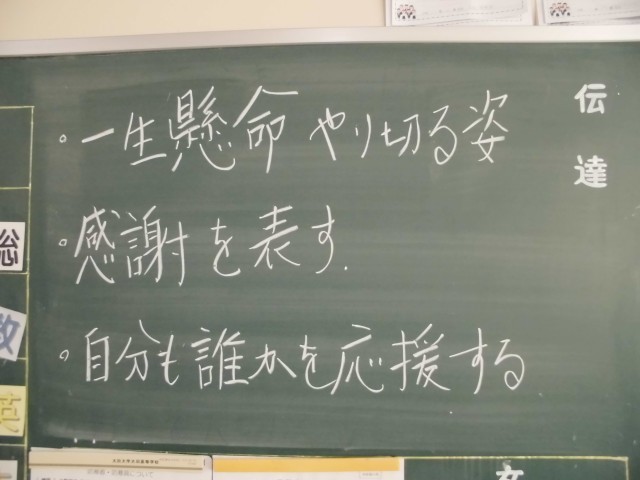 伝達
。一生懸命やり切る姿
。感謝を表す.
。自分も誰かを応援する
総
数
英